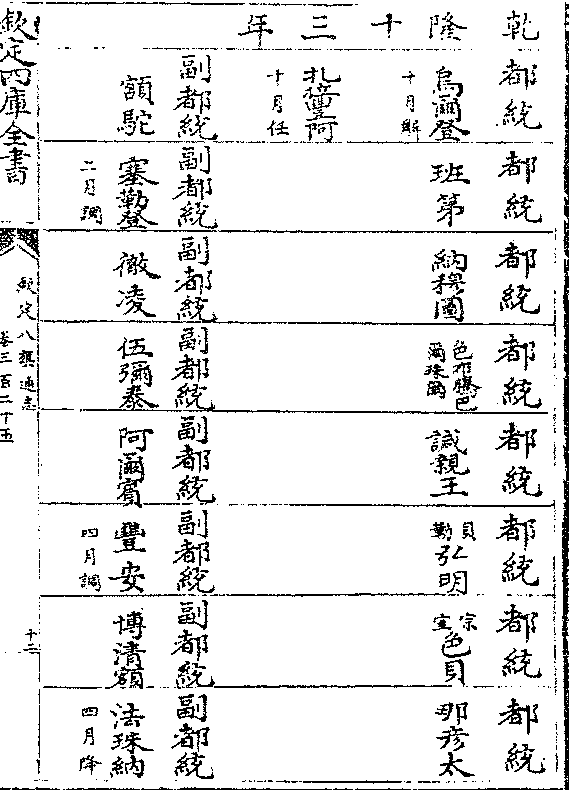 乾隆十三年
都統
烏爾登
十月解
十月任
副都統
額駝
都統
班第
副都統
塞勒登
二月調
都統
納穆圖
副都統
徹凌
都統
色布騰巴
爾珠爾
副都統
伍彌泰
都統
諴親王
副都統
阿爾賓
都統
貝勒弘明
副都統
豐安
四月調
都統
宗室色貝
副都統
博清額
都統
那彥太
副都統
法珠納
四月降
欽定四庫全書
欽定八旗通志
卷三百二十五
十二